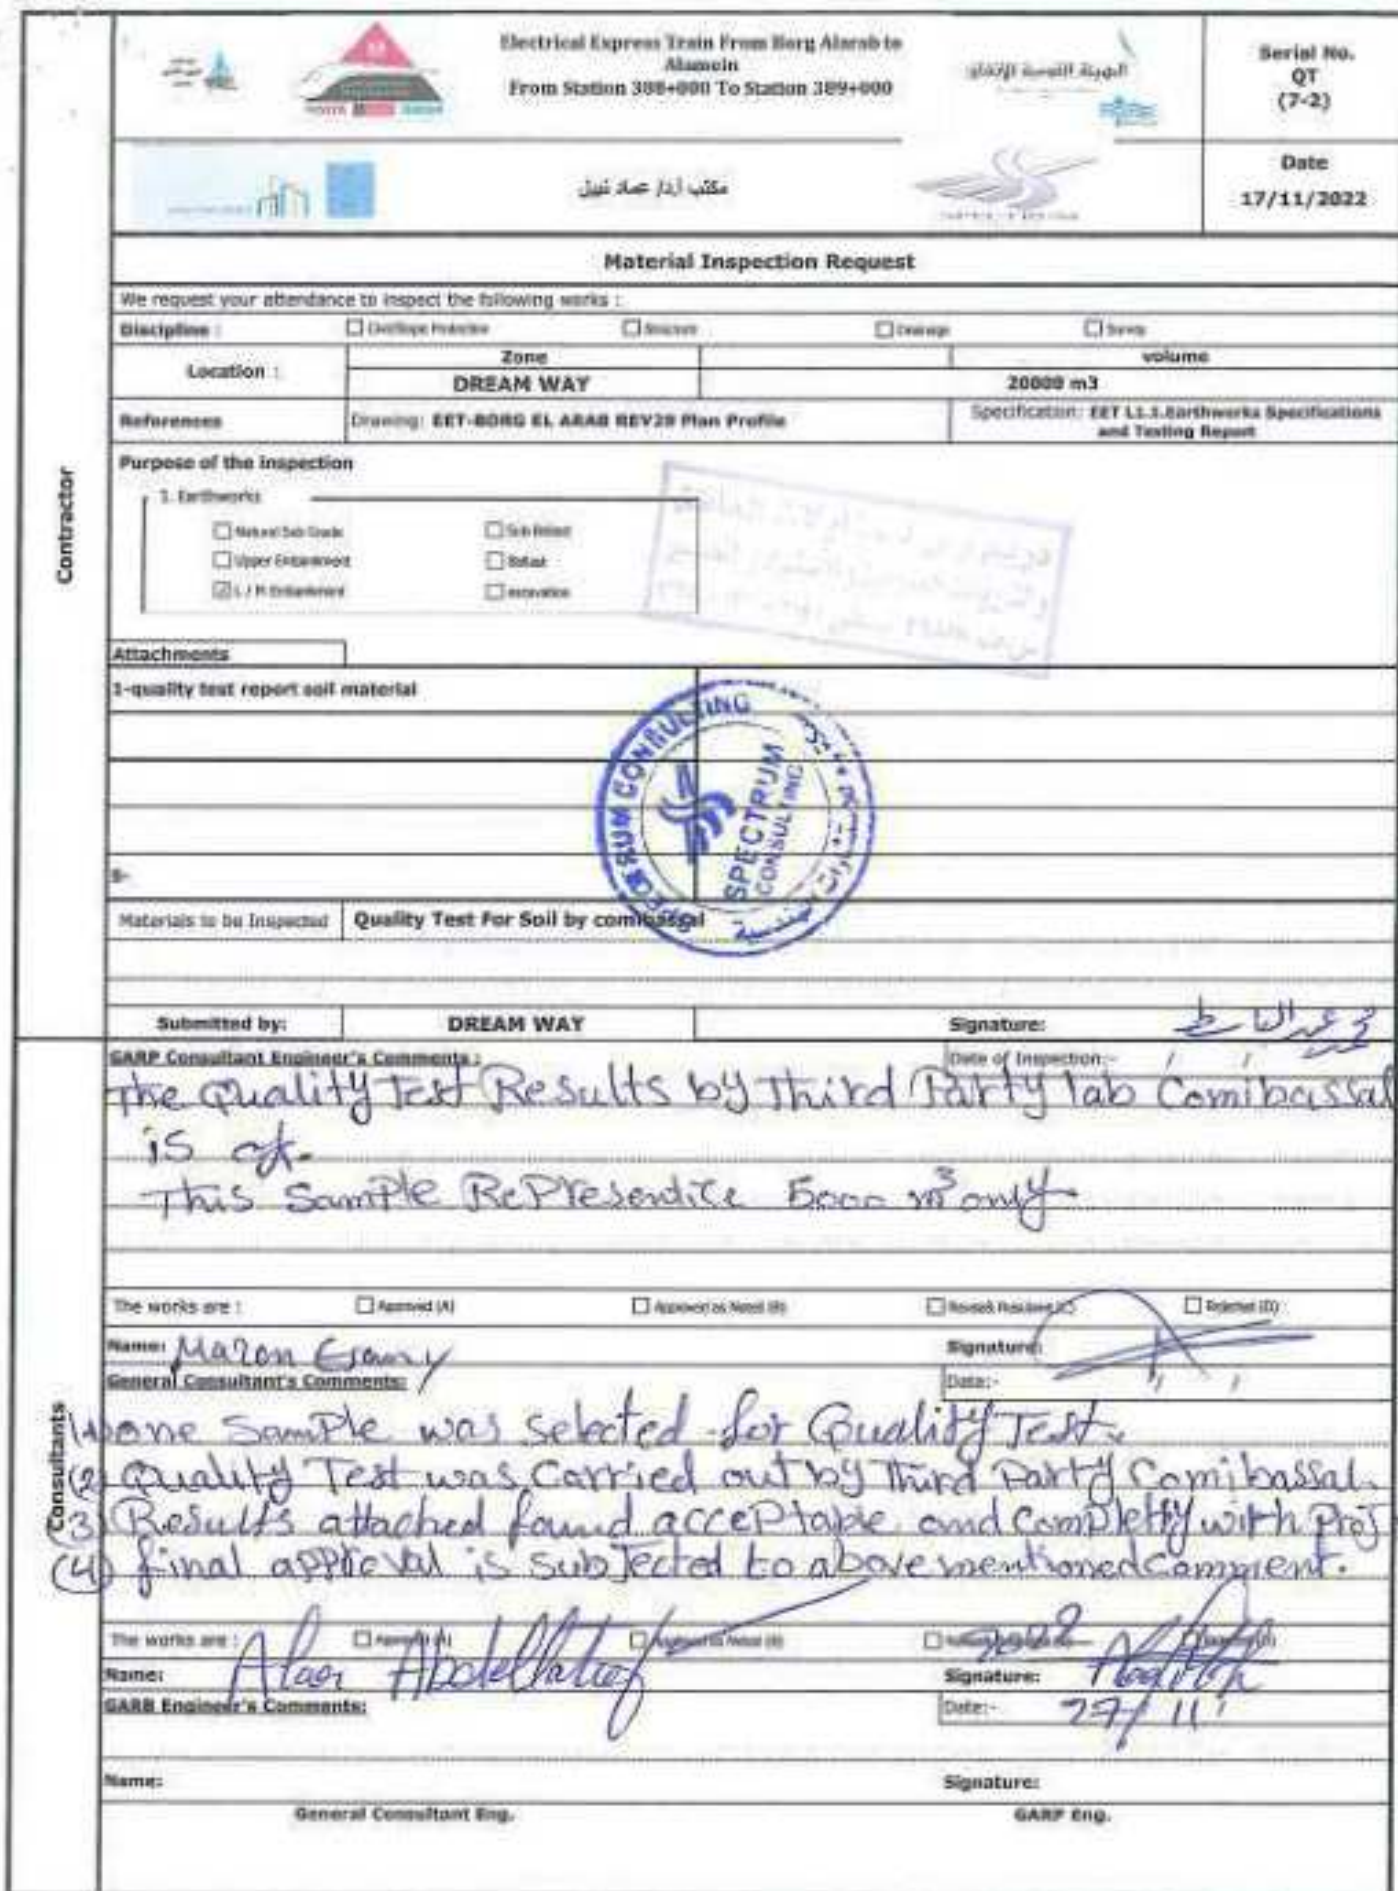 Electrical Express Train From Borg Alarab to
Alamein
From Station 388+000 To Station 389+000
الهيئة القومية للإنفاق
Serial No.
QT
(7-2)
مكتب أ.د/ عماد نبيل
Date
17/11/2022
Material Inspection Request
We request your attendance to inspect the following works :
Discipline : Civil/Slope Protection Structure Drainage Survey
Location : Zone volume
DREAM WAY 20000 m3
References Drawing: EET-BORG EL ARAB REV29 Plan Profile Specification: EET L1.1.Earthworks Specifications
and Testing Report
Contractor
Purpose of the inspection
1. Earthworks
Natural Sub Grade Sub Ballast
Upper Embankment Ballast
L / M Embankment excavation
Attachments
1-quality test report soil material
SPECTRUM CONSULTING
SPECTRUM
CONSULTING
5-
Materials to be Inspected Quality Test For Soil by comibassal
Submitted by: DREAM WAY Signature:
GARP Consultant Engineer's Comments : Date of Inspection:- / /
The Quality Test Results by Third Party lab Comibassal
is ok.
This Sample RePresentice 5000 m3 only.
The works are : Approved (A) Approved as Noted (B) Revise& Resubmit (C) Rejected (D)
Name: Mazen Signature:
General Consultant's Comments: Date:- / /
Consultants
(1) one Sample was Selected for Quality Test.
(2) Quality Test was Carried out by Third Party Comibassal.
(3) Results attached found accePtable and Completly with Proj
(4) final approval is SubJected to above mentioned Comment.
The works are : Approved (A) Approved as Noted (B)
Name: Alaa Abdellatief Signature:
GARB Engineer's Comments: Date:- 27/11/ 2022
Name: Signature:
General Consultant Eng. GARP Eng.